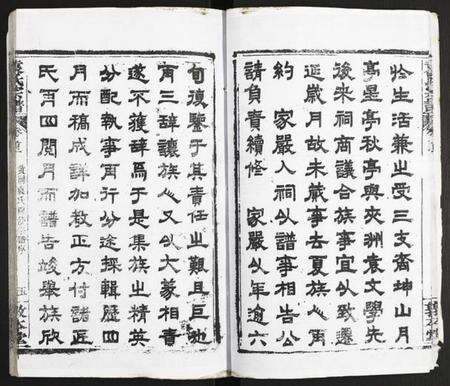 於生活兼之受三支齋坤山月
亭星亭秋亭與夾洲袁文學先
後來祠商議合族事宜以致遷
延歲月故未蕆事去夏族人再
約 家嚴入祠以譜事相告公
請負責續修 家嚴以年逾六
旬復鑒于其責任之艱且巨也
再三辭讓族人又以大義相責
遂不獲辭焉于是集族之精英
分配執事再行分途採輯歷四
月而稿成詳加校正方付諸匠
氏再四閱月而譜告竣舉族欣
卷首
五
敦本堂